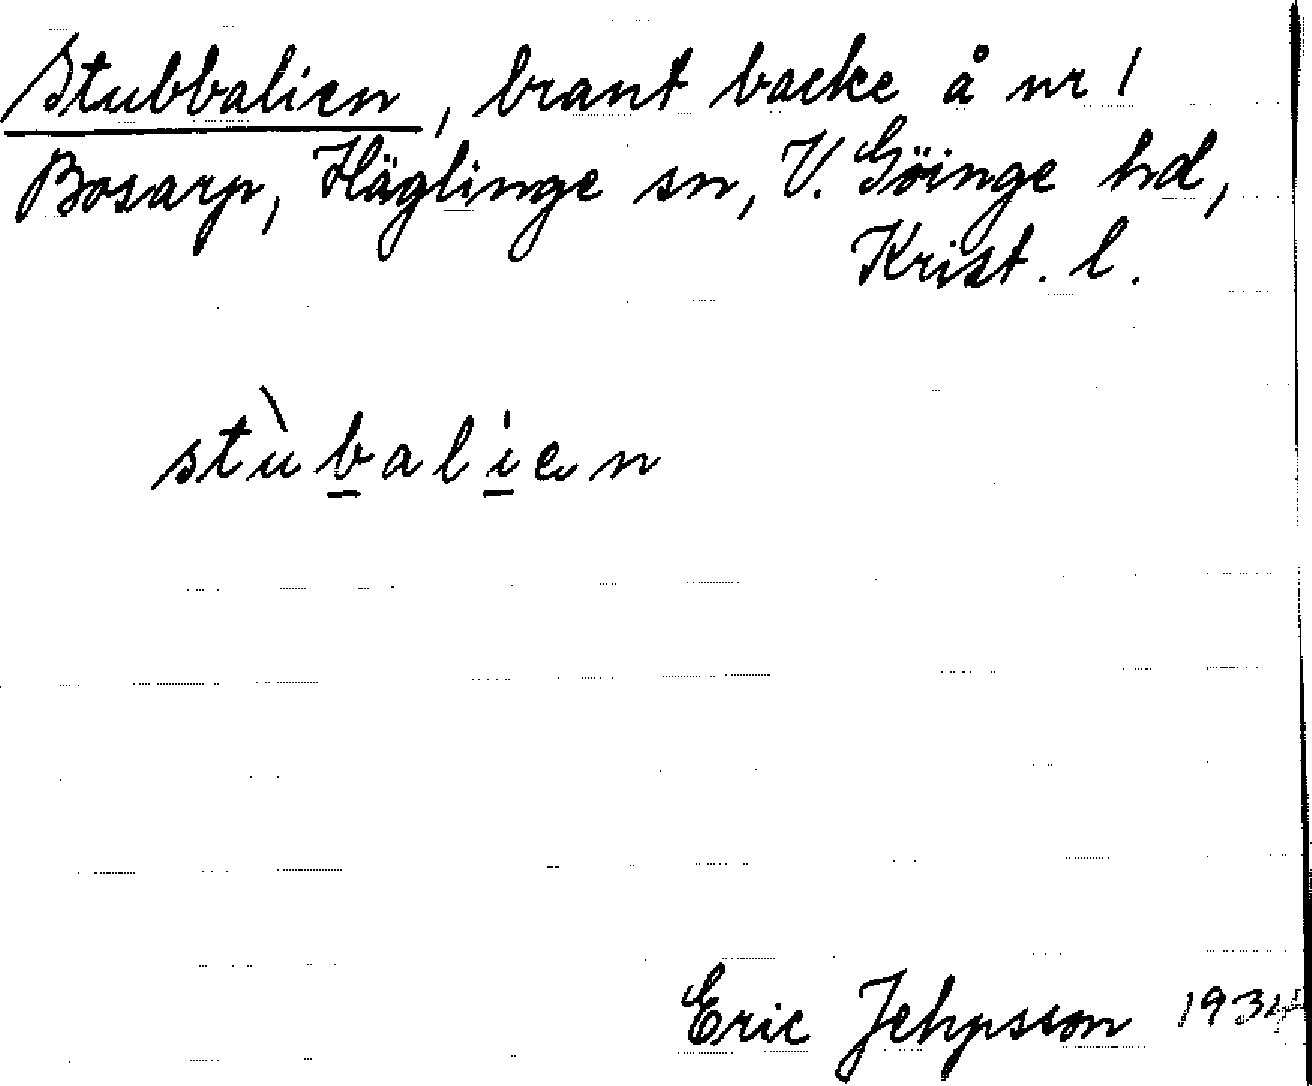 Stubbalien, brant backe å nr 1
Bosarp, Häglinge sn, V. Göinge hd,
Krist. l.
stùbalien
Eric Jehpsson 1934